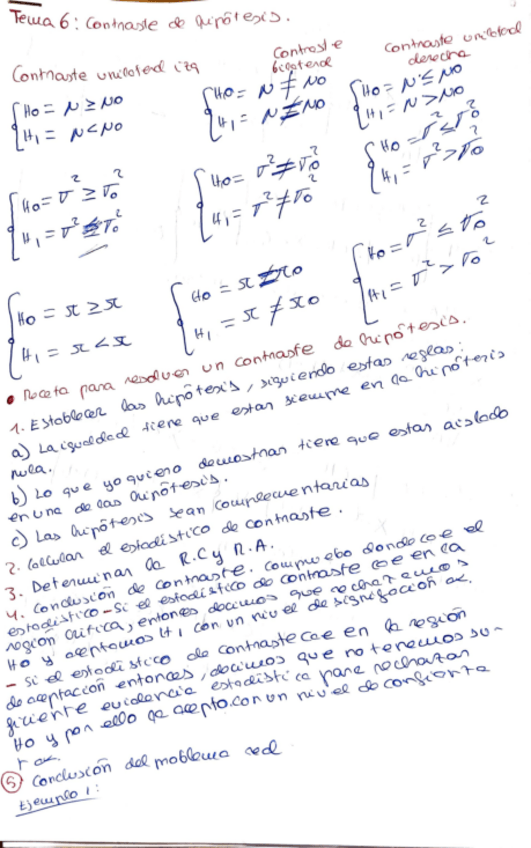 Tema 6: Contraste de hipótesis.
Contraste unilateral izq
Contraste bilateral
Contraste unilateral derecha
H0 = N ≥ N0
H1 = N < N0
H0 = N ≠ N0
H1 = N ≠ N0
H0 = N ≤ N0
H1 = N > N0
H0 = σ² ≥ σ0²
H1 = σ² ≤ σ0²
H0 = σ² ≠ σ0²
H1 = σ² ≠ σ0²
H0 = σ² ≤ σ0²
H1 = σ² > σ0²
H0 = π ≥ π
H1 = π < π
H0 = π ≠ π0
H1 = π ≠ π0
H0 = σ² ≤ σ0²
H1 = σ² > σ0²
• Receta para resolver un contraste de hipótesis.
1. Establecer las hipótesis, siguiendo estas reglas:
a) La igualdad tiene que estar siempre en la hipótesis
nula.
b) Lo que yo quiero demostrar tiene que estar aislado
en una de las hipótesis.
c) Las hipótesis sean complementarias
2. Calcular el estadístico de contraste.
3. Determinar la R.C y R.A.
4. Conclusión de contraste. Compruebo donde cae el
estadístico - Si el estadístico de contraste cae en la
región crítica, entonces decimos que rechazamos
H0 y aceptamos H1 con un nivel de significación α.
- Si el estadístico de contraste cae en la región
de aceptación entonces, decimos que no tenemos su-
ficiente evidencia estadística para rechazar
H0 y por ello se acepto. con un nivel de confianza
1-α.
⑤ Conclusión del problema real
Ejemplo 1: